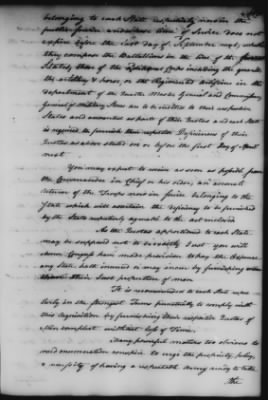 belonging to each State respectively inserted the
whose term of Service does not
expire before the last day of September next, which
they compose the Battallions in the line of the
States, those of the Corps including the guards
the artillery & horse, or the Regimental Artificers in the
department of the Quarter Master General and Commissary
General of military Stores are to be credited to their respective
States and accounted as part of their Quotas and each State
is required to furnish their respective Deficiencies of their
Quotas as above stated on or before the first Day of April
next
You may expect to receive as soon as possible from
the Commander in Chief or his order, an accurate
return of the Troops now in service belonging to the
State which will ascertain the deficiency to be furnished
by the State respectively agreeable to the act inclosed
As the Quotas apportioned to each State
may be supposed not to be exactly Just you will
Congress have made provision to pay the expence
any State hath incured or may incur by furnishing more
than their Just proportion of men
It is recommended to each State
in the strongest Terms punctually to comply with
this requisition by furnishing their respective Quotas of
men compleat without loss of Time.
Many powerful motives too obvious to
need enumeration conspire to urge the propriety, policy,
& necessity of having a respectable army ready to take
the